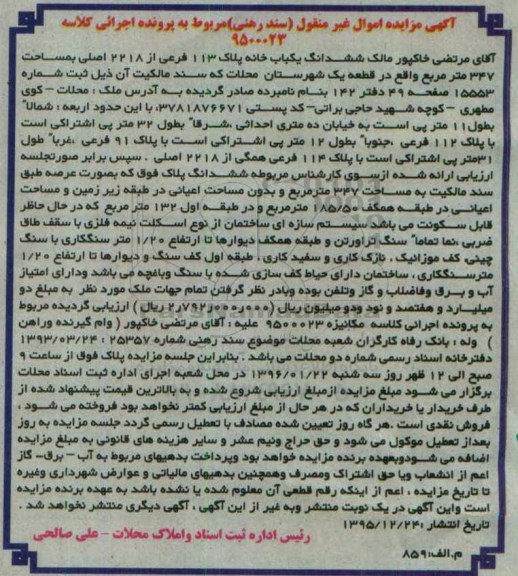 آگهی مزایده اموال غیر منقول (سند رهنی)مربوط به پرونده اجرائی کلاسه
۹۵۰۰۰۲۳
آقای مرتضی خاکپور مالک ششدانگ یکباب خانه پلاک ۱۱۳ فرعی از ۲۲۱۸ اصلی بمساحت
۳۴۷ متر مربع واقع در قطعه یک شهرستان محلات که سند مالکیت آن ذیل ثبت شماره
۱۵۵۵۳ صفحه ۴۹ دفتر ۱۴۲ بنام نامبرده صادر گردیده به آدرس ملک : محلات – کوی
مطهری – کوچه شهید حاجی براتی– کد پستی ۳۷۸۱۸۷۶۶۷۱، با این حدود اربعه : شمالا"
بطول۱۱ متر پی است به خیابان ده متری احداثی ،شرقا" بطول ۳۲ متر پی اشتراکی است
با پلاک ۱۱۲ فرعی ،جنوبا" بطول ۱۲ متر پی اشتراکی است با پلاک ۹۱ فرعی ،غربا" طول
۳۱متر پی اشتراکی است با پلاک ۱۱۴ فرعی همگی از ۲۲۱۸ اصلی . سپس برابر صورتجلسه
ارزیابی ارائه شده ازسوی کارشناس مربوطه ششدانگ پلاک فوق که بصورت عرصه طبق
سند مالکیت به مساحت ۳۴۷ مترمربع و بدون مساحت اعیانی در طبقه زیر زمین و مساحت
اعیانی در طبقه همکف ۱۸۵/۵۰ مترمربع و در طبقه اول ۱۳۲ متر مربع که در حال حاظر
قابل سکونت می باشد سیستم سازه ای ساختمان از نوع اسکلت نیمه فلزی با سقف طاق
ضربی ،نما تماما" سنگ تراورتن و طبقه همکف دیوارها تا ارتفاع ۱/۲۰ متر سنگکاری با سنگ
چینی، کف موزائیک ، نازک کاری و سفید کاری . طبقه اول کف سنگ و دیوارها تا ارتفاع ۱/۲۰
مترسنگکاری ، ساختمان دارای حیاط کف سازی شده با سنگ وباغچه می باشد ودارای امتیاز
آب و برق وفاضلاب و گاز وتلفن بوده وبادر نظر گرفتن تمام جهات ملک مورد نظر به مبلغ دو
میلیارد و هفتصد و نود ودو میلیون ریال (۲٫۷۹۲٫۰۰۰٫۰۰۰ریال) ارزیابی گردیده مربوط
به پرونده اجرائی کلاسه مکانیزه ۹۵۰۰۰۲۳ علیه : آقای مرتضی خاکپور ( وام گیرنده وراهن
) وله : بانک رفاه کارگران شعبه محلات موضوع سند رهنی شماره ۲۵۳۵۷ : ۱۳۹۳/۰۳/۲۴
دفترخانه اسناد رسمی شماره دو محلات می باشد . بنابراین جلسه مزایده پلاک فوق از ساعت ۹
صبح الی ۱۲ ظهر روز سه شنبه ۱۳۹۶/۰۱/۲۲ در محل شعبه اجرای اداره ثبت اسناد محلات
برگزار می شود مبلغ مزایده ازمبلغ ارزیابی شروع شده و به بالاترین قیمت پیشنهاد شده از
طرف خریدار یا خریداران که در هر حال از مبلغ ارزیابی کمتر نخواهد بود فروخته می شود ،
فروش نقدی است .هر گاه روز تعیین شده مصادف با تعطیل رسمی گردد جلسه مزایده به روز
بعداز تعطیل موکول می شود و حق حراج ونیم عشر و سایر هزینه های قانونی به مبلغ مزایده
اضافه می شودوبعهده برنده مزایده خواهد بود وپرداخت بدهیهای مربوط به آب – برق– گاز
اعم از انشعاب ویا حق اشتراک ومصرف وهمچنین بدهیهای مالیاتی و عوارض شهرداری وغیره
تا تاریخ مزایده ، اعم از اینکه رقم قطعی آن معلوم شده یا نشده باشد به عهده برنده مزایده
است واین آگهی در یک نوبت منتشر وبه غیر از این آگهی ، آگهی دیگری منتشر نخواهد شد .
تاریخ انتشار :۱۳۹۵/۱۲/۲۴
رئیس اداره ثبت اسناد واملاک محلات – علی صالحی
م.الف:۸۵۹